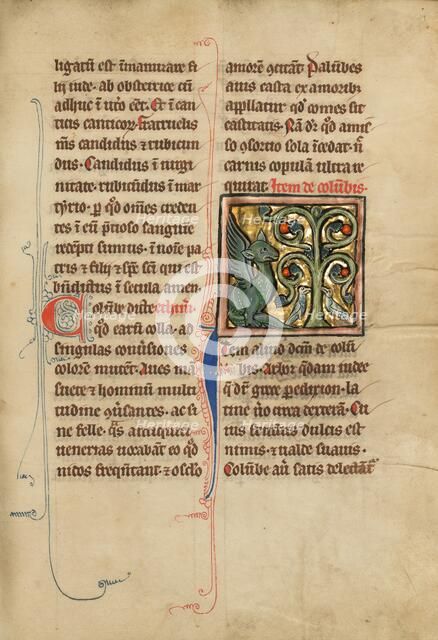 ligatum est in manu tare fi
lii iude · ab obstetrice cu
adhuc in utero eet · Et in can
ticis canticor · fratruelis
ms candidus & rubicun
dus · Candidus in uirgi
nitate · rubicundus in mar
tyrio · p qd omes creden
tes in eu ptioso sanguine
recepti sumus · in noie pa
tris & filii & sps sci qui est
bndictus in secula · amen ·
Columbe dicte
qd earum colla · ad
singulas conuersiones
colorem mutent · Aues man
suete & hominum multi
tudine conuersantes · ac si
ne felle · qs antiqui
uenerias uocabant eo qd
nidos frequentant · & osculo
amore concitant · Palumbes
auis casta ex moribus
appellatur qd comes sit
castitatis · Nam dr qd amis
so consortio sola incedat · n
carnis copulam ultra re
quirat · Item de columbis ·
Item aliud dcm de colu
bis · Arbor quedam in indie
que dr grece peredixion · la
tine uero circa dexteram · Cu
ius fructus dulcis est
nimis · & ualde suauis ·
Columbe au satis delectant